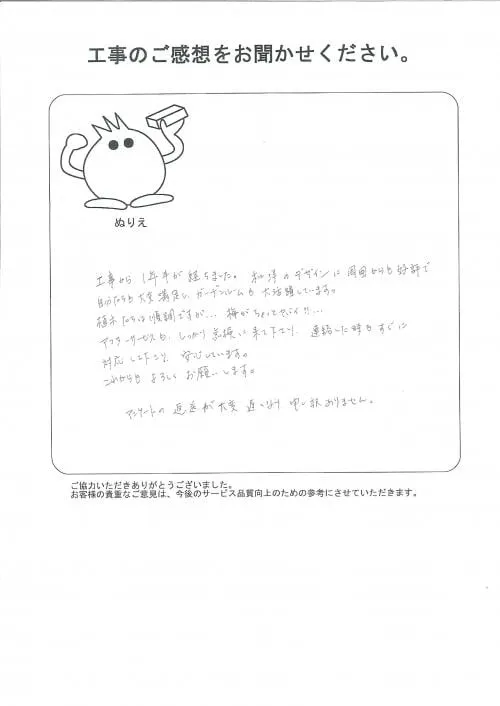 工事のご感想をお聞かせください。
ぬりえ
工事から1年半が経ちました。和洋のデザインに周囲からも好評で
自分たちも大変満足し ガーデンルームも大活躍しています。
植木たちは順調ですが… 梅がちょっと
アフターサービスも、しっかり点検に来て下さり、連絡した時もすぐに
対応して下さり、安心しています。
これからもよろしくお願いします。
アンケートの返送が大変遅くなり申し訳ありません。
ご協力いただきありがとうございました。
お客様の貴重なご意見は、今後のサービス品質向上のための参考にさせていただきます。